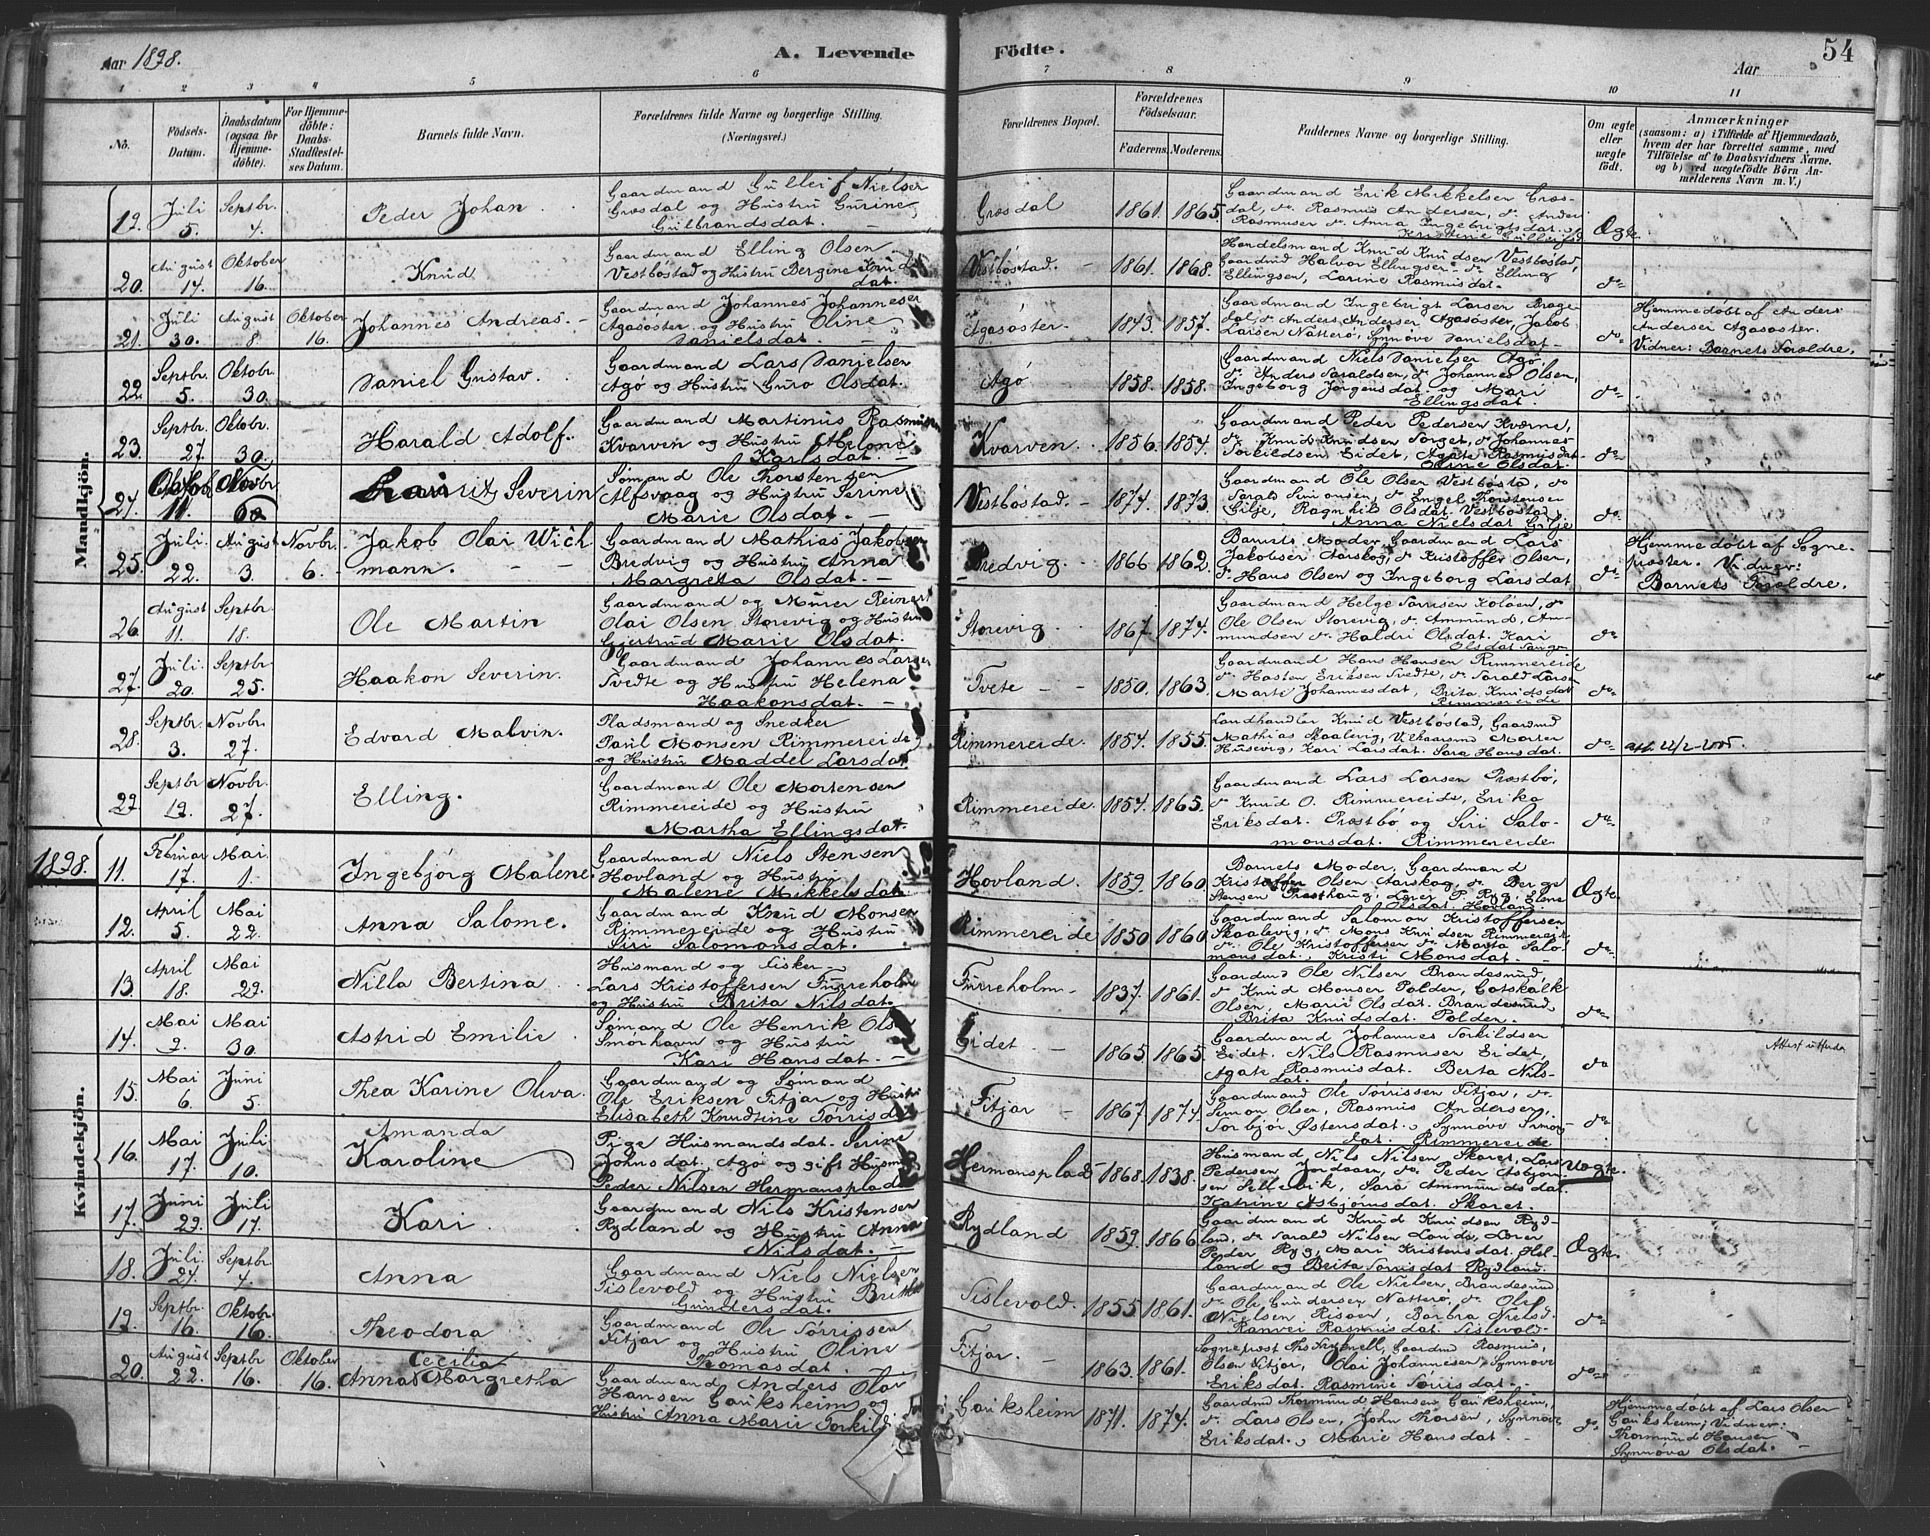 Aar 1898.
A. Levende
Födte.
Aar
54
1 2 3 4 5 6 7 8 9 10 11
No.
Födsels-
Datum.
Daabsdatum
(ogsaa for
Hjemme-
döbte).
For Hjemme-
döbte:
Daabs-
Stadfæstel-
ses Datum.
Barnets fulde Navn.
Forældrenes fulde Navne og borgerlige Stilling.
(Næringsvei.)
Forældrenes Bopæl.
Forældrenes
Födselsaar.
Faderens.
Moderens.
Faddernes Navne og borgerlige Stilling.
Om ægte
eller
uægte
födt.
Anmærkninger
(saasom: a) i Tilfælde af Hjemmedaab,
hvem der har forrettet samme, med
Tilföielse af to Daabsvidners Navne.
og b) ved uægtefödte Börn An-
melderens Navn m. V.)
Mandkjön.
19. Juli 5. Septbr. 4.
Peder Johan
Gaardmand Gulleif Nielsen
Græsdal og Hustru Gurine
Gulbrandsdat.
Græsdal 1861. 1865.
Gaardmand Erik Mikkelsen Græs-
dal, do Rasmus Andersen, do Anders
Rasmusen do Anna Ingebrigtsdat.
Ægte.
20. August 14. Oktober 16.
Knud
Gaardmand Elling Olsen
Vestböstad og Hustru Bergine Knuds
dat.
Vestböstad. 1861. 1868.
Handelsmand Knud Knudsen Vestböstad,
Gaardmd Halvor Ellingsen do Elling
Ellingsen, Larine Rasmusdat.
do
21. Juli 30. August 8 Oktober 16.
Johannes Andreas.
Gaardmand Johannes Johannesen
Agasöster og Hustru Oline
Danielsdat.
Agasöster. 1843. 1857.
Gaardmand Ingebrigt Larsen Drage
dal, do Anders Andersen Agasöster, Jakob
Larsen Natterö, Synnöve Danielsdat.
do
Hjemmedöbt af Anders
Andersen Agasöster.
Vidner: Barnets Foræld​re,
22. Septbr. 5. Oktobr. 30.
Daniel Gustav.
Gaardmand Lars Danielsen
Agö og Hustru Guro Olsdat.
Agö 1858. 1858.
Gaardmand Niels Danielsen Agö.
do Anders Haraldsen, do Johannes Olsen,
Ingeborg Jörgensdat. og Mari
Ellingsdat.
do
23. Septbr. 27. Oktobr. 30.
Harald Adolf.
Gaardmand Martinus Rasmusen
Kvarven og Hustru Helene
Karlsdat.
Kvarven. 1856. 1854.
Gaardmand Peder Pedersen Kværne,
do Knud Knudsen Sorget, do Johannes
Torkildsen Eidet, Agate Rasmusdat
Oline Olsdat.
do
24. Octob. 11. Novbr. 6
Lauritz Severin
Sømand Ole Thorstensen
Alfsvaag og Hustru Serine
Marie Olsdat.
Vestböstad. 1874. 1873.
Gaardmand Ole Olsen Vestböstad, do
Harald Simonsen, do Engel Torstensen
Gilje, Ragnhild Olsdat. Vestböstad,
Anna Nielsdat Gilje
do
25. Juli 22. August 3. Novbr. 6.
Jakob Olai Wich
mann.
Gaardmand Mathias Jakobsen
Bredvig og Hustru Anna
Margreta Olsdat.
Bredvig. 1866 1862.
Barnets Moder, Gaardmand Lars
Jakobsen Aarskog, do Kristoffer Olsen,
do Hans Olsen og Ingeborg Larsdat
do
Hjemmedöbt af Sogne-
præsten. Vidner:
Barnets Forældre.
26. August 11. Septbr. 18.
Ole Martin
Gaardmand og Murer Reinert
Olai Olsen Storevig og Hustru
Gjertrud Marie Olsdat.
Storevig 1867. 1874.
Gaardmand Helge Torrisen Koløen, do
Ole Olsen Storevig, do Ammund Am-
mundsen do Haldri Olsdat. Kari
do
27. Juli. 20. Septbr 25.
Haakon Severin.
Gaardmand Johannes Larsen
Tvedte og Hustru Helena
Haakonsdat.
Tvete 1850. 1863.
Gaardmand Hans Hansen Rimmereide
do Hasten Eriksen Tvedte, do Harald Larsen
Marte Johannesdat, Brita Knudsdat
Rimmereide
do
28. Septbr. 3. Novbr. 27.
Edvard Malvin.
Pladsmand og Snedker
Paul Monsen Rimmereide
og Hustru Maddel Larsdat.
Rimmereide. 1854. 1855.
Landhandler Knud Vestböstad, Gaardmd
Mathias Skaalevig, Morten
Husevig, Kari Larsdat. Sara Hansdat.
do
29. Septbr 19. Novbr. 27.
Elling.
Gaardmand Ole Mortensen
Rimmereide og Hustru
Martha Ellingsdat.
Rimmereide. 1854. 1865.
Gaardmand Lars Larsen Præstbö,
do Knud O. Rimmereide, Erika
Eriksdat. Præstbö og Siri Salo-
monsdat. Rimmereide
do
1898.
Kvindekjön.
11. Februar 17. Mai 1.
Ingebjörg Malene
Gaardmand Niels Stensen
Hovland og Hustru
Malene Mikkelsdat
Hovland. 1859. 1860.
Barnets Moder, Gaardmand
Kristoffer Olsen Aarskog, do Berge
Stensen Præsthaug, Lærer P. Ryg, Elene
Olsdat. Hovland
Ægte.
12. April 5. Mai 22.
Anna Salome.
Gaardmand Knud Monsen
Rimmereide og Hustru
Siri Salomonsdat.
Rimmereide 1850 1860
Gaardmand Salomon Kristoffersen
Skaalevig, do Mons Knudsen Rimmereide
do Ole Kristoffersen do Marta Salo-
monsdat., Kristi Monsdat.
do
13. April 18. Mai 29.
Nilla Bertina
Husmand og Fisker
Lars Kristoffersen Furreholm
og Hustru Brita Nilsdat.
Furreholm 1837. 1861.
Gaardmd Ole Nilsen Brandesund,
do Knud Monsen Polden, Baadskalk
Olsen, Marie Olsdat. Brandesund
Brita Knudsdat. Polden.
do
14. Mai 9. Mai 30.
Astrid Emilie
Sømand Ole Henrik Olsen
Smörhavn og Hustru
Kari Hansdat.
Eidet 1865. 1865.
Gaardmand Johannes Torkildsen
Eidet. Nils Rasmusen Eidet,
Agate Rasmusdat. Berta Nils-
dat.
do
Attest utferda
15. Mai 6. Juni 5.
Thea Karine Oliva.
Gaardmand og Sømand
Ole Eriksen Fitjar og Hustru
Elisabeth Knudtine Tørrisdat
Fitjar 1867. 1874.
Gaardmand Ole Tørrissen Fitjar, do
Simon Olsen, Rasmus Andersen,
Torbjör Østensdat., Synnöve Simons
dat. Rimmereide
do
16. Mai 17. Juli 10.
Amanda
Karoline
Pige Husmandsdat. Serine
Johnsdat. Agö og gift Husmd
Peder Nilsen Hermansplads
Hermansplads 1868. 1838.
Husmand Nils Nilsen Skaret, Lars
Pedersen Jordaaen, do Peder Asbjörn
sen Sellevik, Sara Ammundsdat
Katrine Asbjörnsdat. Skaret.
Uægte.
17. Juni 29. Juli 17.
Kari
Gaardmand Nils Kristensen
Rydland og Hustru Anna
Nilsdat.
Rydland 1859. 1866
Gaardmand Knud Knudsen Ryd-
land, do Harald Nilsen Lunde, Lærer
Peder Ryg, Mari Kristensdat. Hel-
land og Brita Torrisdat Rydland.
Ægte.
18. Juli 24. Septbr. 4.
Anna
Gaardmand Niels Nielsen
Tislevold og Hustru Britha
Gundersdat.
Tislevold. 1855. 1861.
Gaardmand Ole Nielsen Brandesund
do Ole Gundersen Natterö, do Olef
Nielsen Risöen, Barbra Nielsd.
Ranvei Rasmusdat. Tislevold
do
19. Septbr. 16. Oktobr. 16.
Theodora
Gaardmand Ole Tørrissen
Fitjar og Hustru Oline
Thomasdat.
Fitjar. 1863. 1861.
Sogneprest Ths Frydnell, Gaardmd Rasmus
Olsen Fitjar, Olai Johannesen Synnöve
Eriksdat. Rasmine Tørrisdat
do
20. August 22. Septbr 16. Oktober 16.
Cecilia
Anna Margretha
Gaardmand Anders Olai
Hansen Gauksheim og
Hustru Anna Marie Torkild
Gauksheim 1871. 1874.
Gaardmd Thormund Hansen Gauksheim,
do Lars Olsen, John Thorsen, Synnöve
Eriksdat., Marie Hansdat.
do
Hjemmedöbt af Lars Olsen
Gauksheim; Vidner:
Thormund Hansen
Synnöva Olsdat.